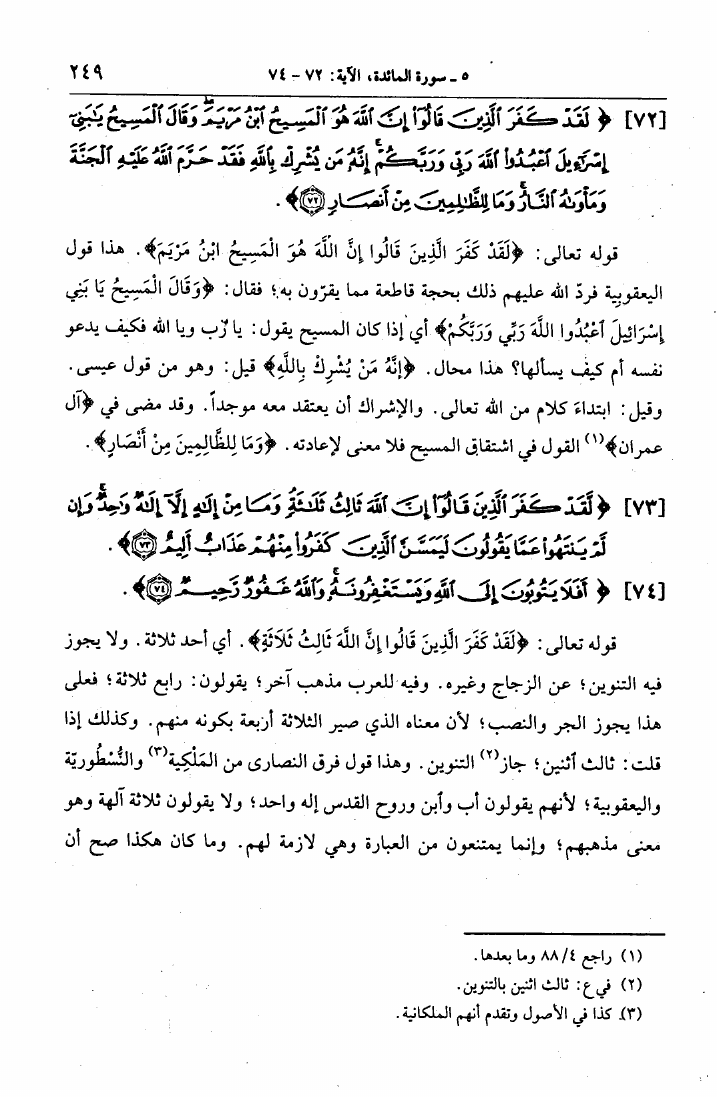 ٥ - سورة المائدة، الآية: ٧٢ - ٧٤
٢٤٩
[٧٢] ﴿ لَقَدْ كَفَرَ ٱلَّذِينَ قَالُوٓا۟ إِنَّ ٱللَّهَ هُوَ ٱلْمَسِيحُ ٱبْنُ مَرْيَمَ ۖ وَقَالَ ٱلْمَسِيحُ يَٰبَنِىٓ
إِسْرَٰٓءِيلَ ٱعْبُدُوا۟ ٱللَّهَ رَبِّى وَرَبَّكُمْ ۖ إِنَّهُۥ مَن يُشْرِكْ بِٱللَّهِ فَقَدْ حَرَّمَ ٱللَّهُ عَلَيْهِ ٱلْجَنَّةَ
وَمَأْوَىٰهُ ٱلنَّارُ ۖ وَمَا لِلظَّٰلِمِينَ مِنْ أَنصَارٍ ﴿٧٢﴾ ﴾.
قوله تعالى: ﴿لَقَدْ كَفَرَ الَّذِينَ قَالُوا إِنَّ اللَّهَ هُوَ الْمَسِيحُ ابْنُ مَرْيَمَ﴾. هذا قول
اليعقوبية فردّ الله عليهم ذلك بحجة قاطعة مما يقرّون به؛ فقال: ﴿وَقَالَ الْمَسِيحُ يَا بَنِي
إِسْرَائِيلَ ٱعْبُدُوا اللَّهَ رَبِّي وَرَبَّكُمْ﴾ أي إذا كان المسيح يقول: يا رَب ويا الله فكيف يدعو
نفسه أم كيف يسألها؟ هذا محال. ﴿إِنَّهُ مَنْ يُشْرِكْ بِاللَّهِ﴾ قيل: وهو من قول عيسى.
وقيل: ابتداءَ كلام من الله تعالى. والإشراك أن يعتقد معه موجداً. وقد مضى في ﴿آل
عمران﴾(١) القول في اشتقاق المسيح فلا معنى لإعادته. ﴿وَمَا لِلظَّالِمِينَ مِنْ أَنْصَارٍ﴾.
[٧٣] ﴿ لَّقَدْ كَفَرَ ٱلَّذِينَ قَالُوٓا۟ إِنَّ ٱللَّهَ ثَالِثُ ثَلَٰثَةٍ ۘ وَمَا مِنْ إِلَٰهٍ إِلَّآ إِلَٰهٌ وَٰحِدٌ ۚ وَإِن
لَّمْ يَنتَهُوا۟ عَمَّا يَقُولُونَ لَيَمَسَّنَّ ٱلَّذِينَ كَفَرُوا۟ مِنْهُمْ عَذَابٌ أَلِيمٌ ﴿٧٣﴾ ﴾.
[٧٤] ﴿ أَفَلَا يَتُوبُونَ إِلَى ٱللَّهِ وَيَسْتَغْفِرُونَهُۥ ۚ وَٱللَّهُ غَفُورٌ رَّحِيمٌ ﴿٧٤﴾ ﴾.
قوله تعالى: ﴿لَقَدْ كَفَرَ الَّذِينَ قَالُوا إِنَّ اللَّهَ ثَالِثُ ثَلَاثَةٍ﴾. أي أحد ثلاثة. ولا يجوز
فيه التنوين؛ عن الزجاج وغيره. وفيه للعرب مذهب آخر؛ يقولون: رابع ثلاثة؛ فعلى
هذا يجوز الجر والنصب؛ لأن معناه الذي صير الثلاثة أربعة بكونه منهم. وكذلك إذا
قلت: ثالث ٱثنين؛ جاز(٢) التنوين. وهذا قول فرق النصارى من المَلْكِية(٣) والنُّسْطُوريّة
واليعقوبية؛ لأنهم يقولون أب وٱبن وروح القدس إله واحد؛ ولا يقولون ثلاثة آلهة وهو
معنى مذهبهم؛ وإنما يمتنعون من العبارة وهي لازمة لهم. وما كان هكذا صح أن
(١) راجع ٨٨/٤ وما بعدها.
(٢) في ع: ثالث اثنين بالتنوين.
(٣) كذا في الأصول وتقدم أنهم الملكانية.